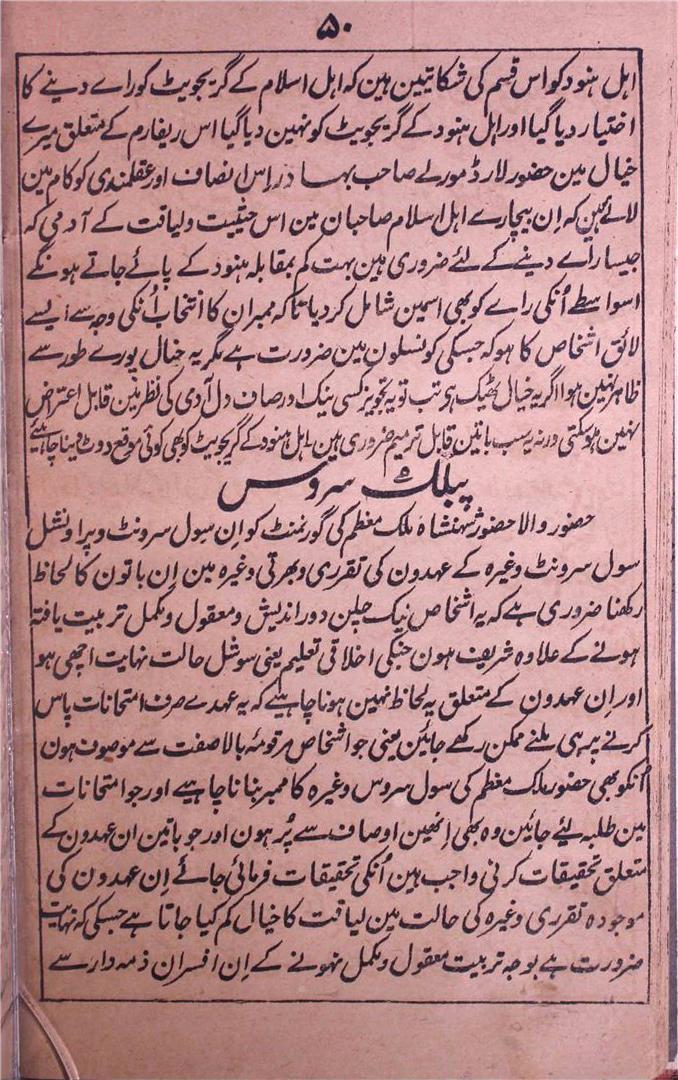 ۵۰
اهل ہنود کو اس قسم کی شکایتیں ہین کہ اہل اسلام کے گریجویٹ کو راے دینے کا
اختیار دیا گیا اور اہل ہنود کے گریجویٹ کو نہین دیا گیا اس ریفارم کے متعلق میرے
خیال مین حضور لارڈ مورلے صاحب بہادر اس انصاف اور عقلمندی کو کام مین
لائے ہین کہ اِن بیچارے اہل اسلام صاحبان مین اس حیثیت ولیاقت کے آدمی کہ
جیسا راے دینے کے لئے ضروری ہین بہت کم بمقابلہ ہنود کے پائے جاتے ہونگے
اسواسطے اُنکی راے کو بھی اسمین شامل کردیا تاکہ ممبران کا انتخاب اُنکی وجہ سے ایسے
لائق اشخاص کا ہو کہ جسکی کونسلون مین ضرورت ہے مگر یہ خیال پورے طور سے
ظاہر نہین ہوا اگر یہ خیال ٹھیک ہی تب تو یہ تجویز کسی نیک اور صاف دل آدمی کی نظر مین قابل اعتراض
نہین ہوسکتی ورنہ یہ سب باتین قابل ترمیم ضروری ہین۔ اہل ہنود کے گریجویٹ کو بھی کوئی موقع ووٹ دینا چاہیئے
پبلک سروس
حضور والا حضور شہنشاہ ملک معظم کی گورنمنٹ کو اِن سِول سرونٹ وپراونشل
سول سرونٹ وغیرہ کے عہدون کی تقرری وبھرتی وغیرہ مین اِن باتون کا لحاظ
رکھنا ضروری ہے کہ یہ اشخاص نیک چلن دوراندیش ومعقول ومکمل تربیت یافتہ
ہونے کے علاوہ شریف ہون جنکی اخلاقی تعلیم یعنی سوشل حالت نہایت اچھی ہو
اور اِن عہدون کے متعلق یہ لحاظ نہین ہونا چاہیئے کہ یہ عہدے صرف امتحانات پاس
کرنے پر ہی ملنے ممکن رکھے جائین یعنی جو اشخاص مرقومۂ بالا صفت سے موصوف ہون
اُنکو بھی حضور ملک معظم کی سول سروس وغیرہ کا ممبر بنانا چاہیے اور جو امتحانات
مین طلبہ لئے جائین وہ بھی اِنھین اوصاف سے پُر ہون اور جو باتین ان عہدون کے
متعلق تحقیقات کرنی واجب ہین اُنکی تحقیقات فرمائی جائے اِن عہدون کی
موجودہ تقرری وغیرہ کی حالت مین لیاقت کا خیال کم کیا جاتا ہے جسکی کہ نہایت
ضرورت ہے بوجہ تربیت معقول ومکمل نہونے کے اِن افسران ذمہ دار سے